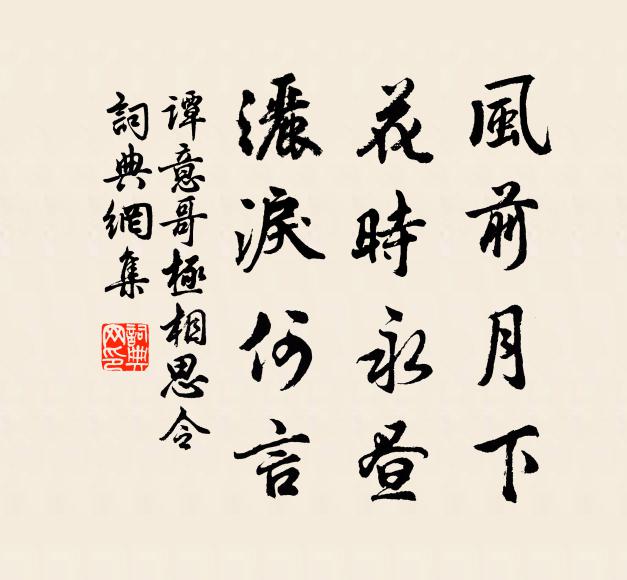 風前月下
花時永昼
灑淚何言
谭意哥極相思令
詞典網集
詞典网印